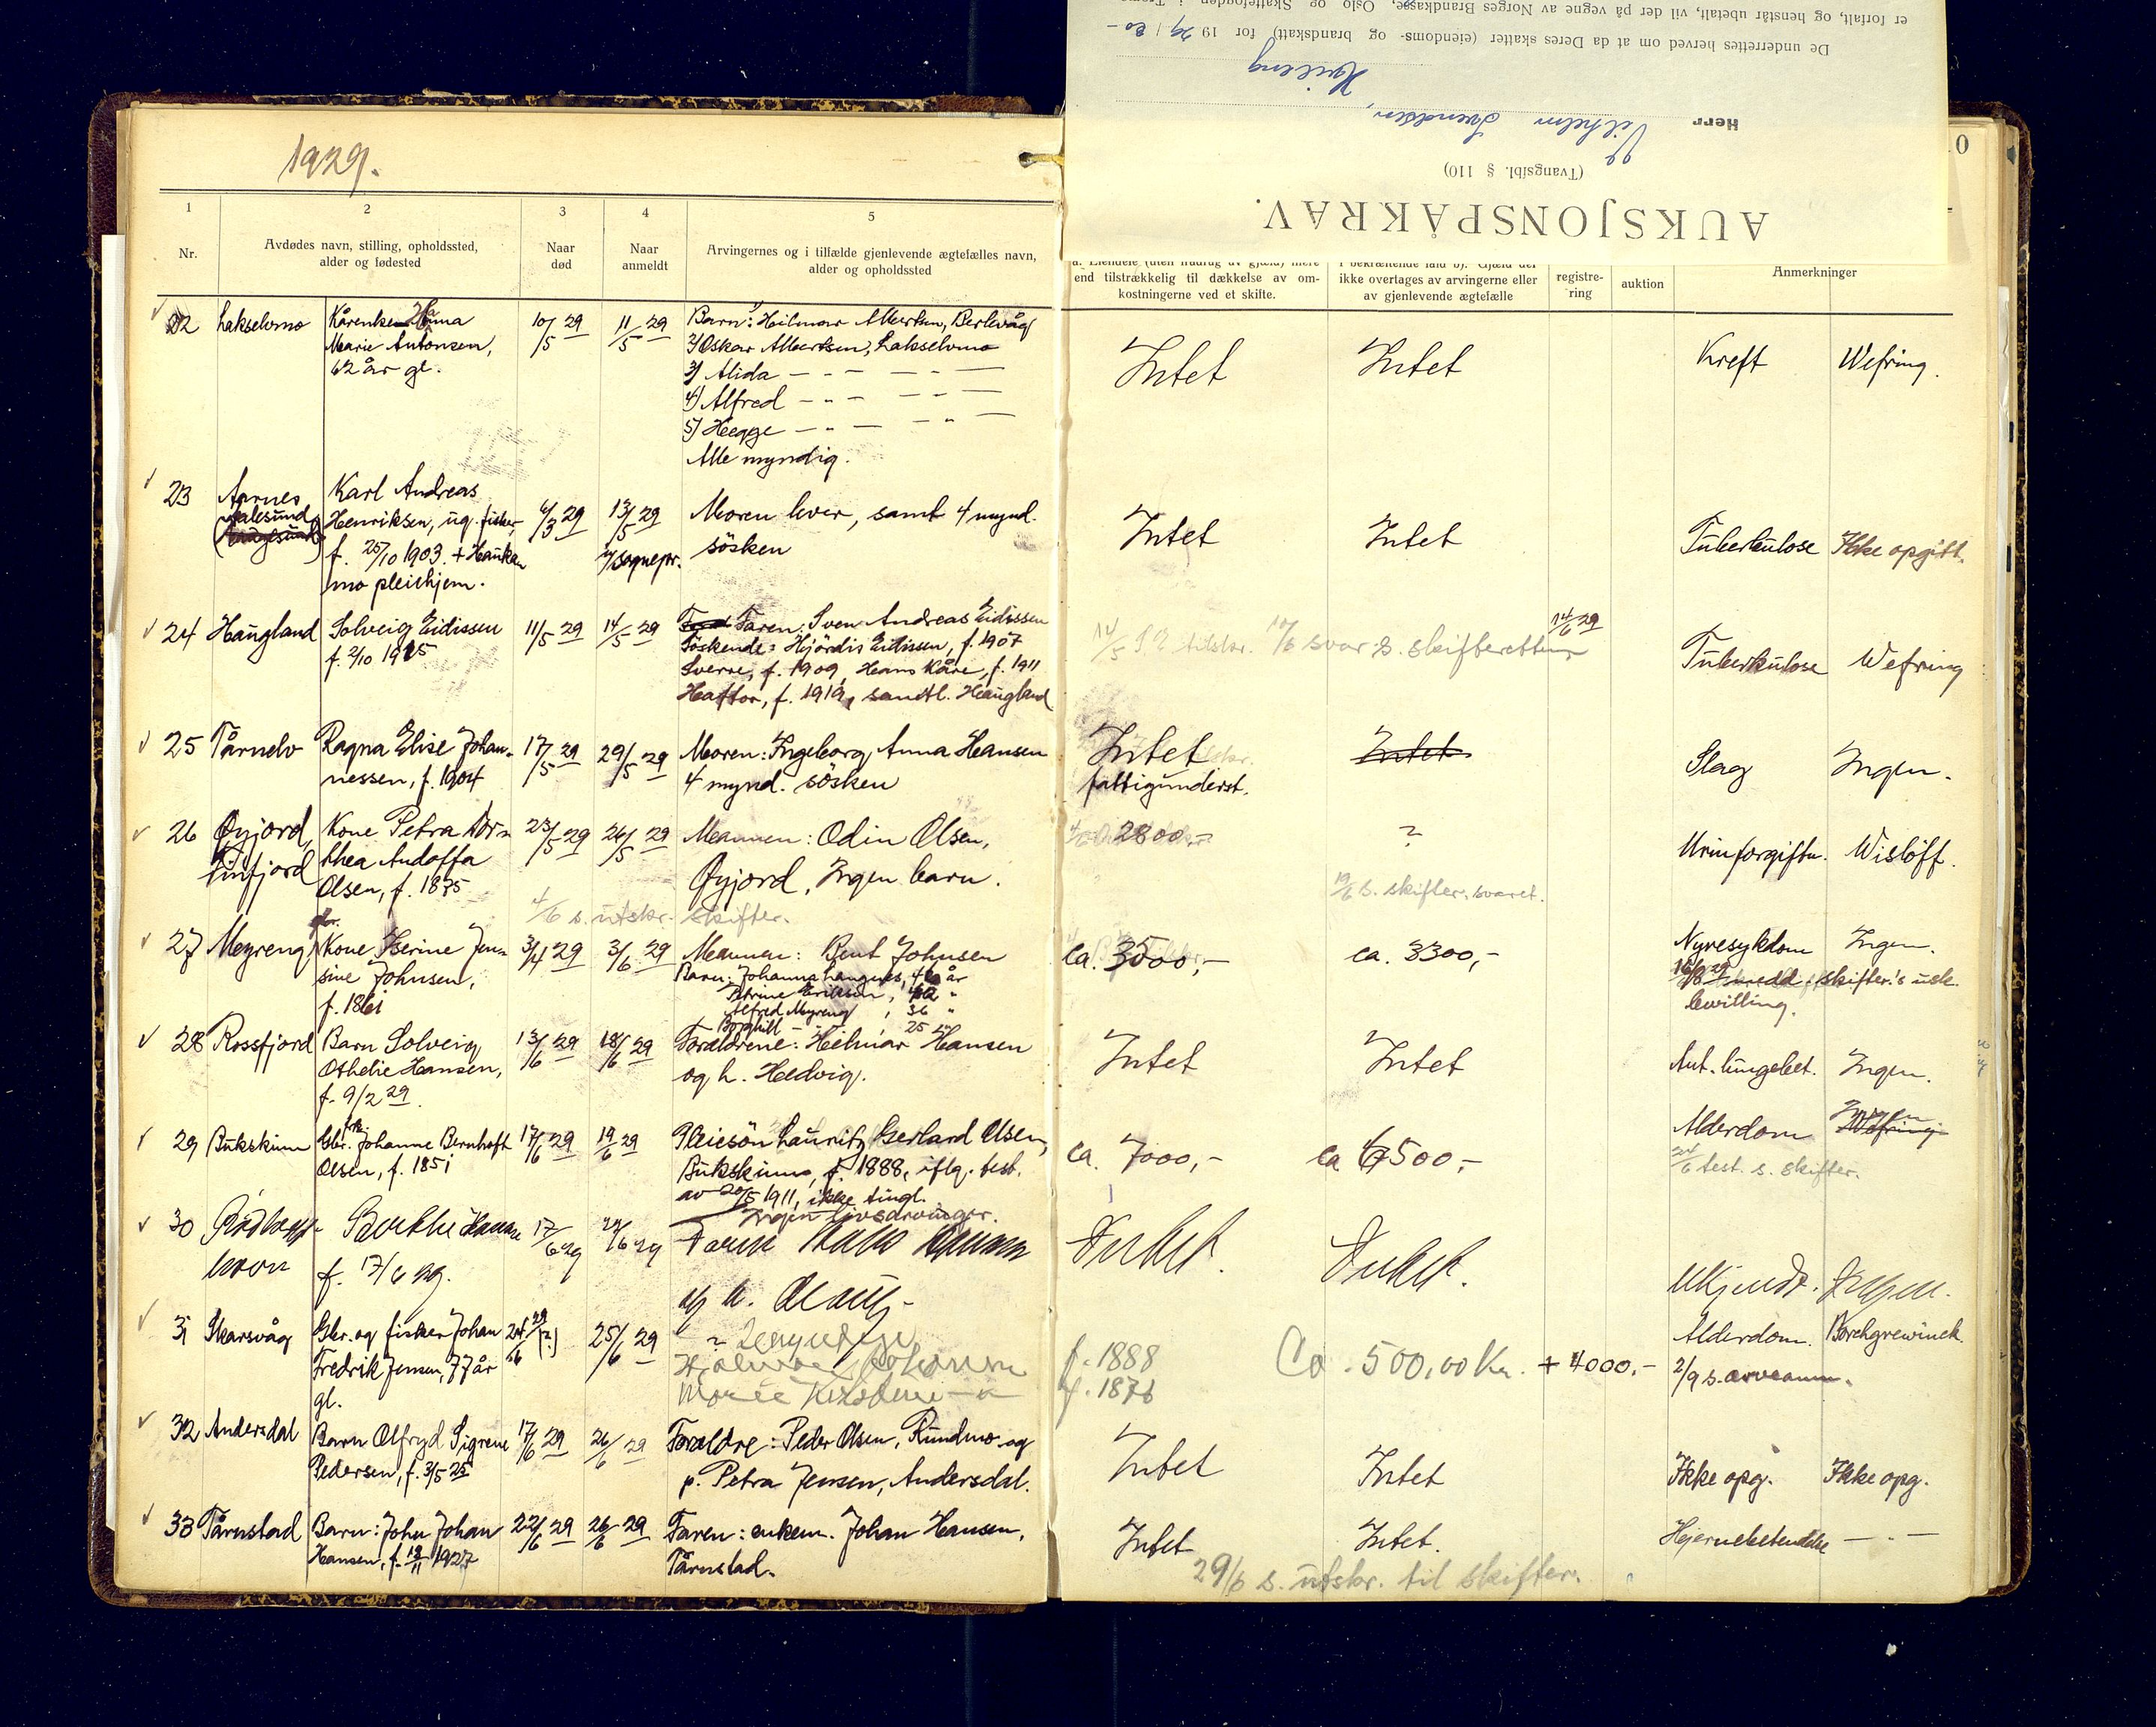 1929.
1
2
3
4
5
Nr.
Avdødes navn, stilling, opholdssted,
alder og fødested
Naar
død
Naar
anmeldt
Arvingernes og i tilfælde gjenlevende ægtefælles navn,
alder og opholdssted
er forfalt, og henstår ubetalt, vil der på vegne av Norges Brandkasse, Oslo og Skattefogden i
De underrettes herved om at da Deres skatter (eiendoms- og brandskatt) for 1929/30
Herr Vilhelm Svendsen,
(Tvangsfbl. § 110)
AUKSJONSPÅKRAV.
end tilstrækkelig til dækkelse av om-
kostningerne ved et skifte.
ikke overtages av arvingerne eller
av gjenlevende ægtefælle
registre-
ring
auktion
Anmerkninger
22 Lakselvmo
Marie Antonsen,
62 år gl.
10/5 29
11/5 29
Barn: Hilmar Albertsen, Berlevåg
2) Oskar Albertsen, Lakselvmo
3) Alida — " — — " —
4) Alfred — " — — " —
5) Hegge — " — — " —
Alle myndig.
Intet
Intet
Kreft
Wefring.
23 Aarnes
Karl Andreas
Henriksen, ug. fisker,
f. 25/10 1903. + Haukenes
mo pleiehjem.
6/3 29
13/5 29
v/ sognepr.
Moren lever, samt 4 mynd.
søsken
Intet
Intet
Tuberkulose
Ikke opgitt.
24 Haugland
Solveig Eidissen
f. 2/10 1915
11/5 29
14/5 29
Faren: Sven Andreas Eidissen
Søskende: Hjördis Eidissen, f. 1907
Sverre, f. 1909, Hans Kåre, f. 1911
Haftor, f. 1919, samtl. Haugland
14/6 29
14/5 s. utskr. 10/6 svar s. skifteretten
Tuberkulose
Wefring
25 Tårnelv
Ragna Elise Johan-
nessen, f. 1904
17/5 29
29/5 29
Moren: Ingeborg Anna Hansen
4 mynd. søsken
Intet
fattigunderst.
Intet
Slag
Ingen.
26 Øyjord,
finfjord
Kone Petra Dor-
thea Andoffa
Olsen, f. 1875
23/5 29
26/5 29
Mannen: Odin Olsen,
Øyjord, Ingen barn.
4/6 s. utskr. skifter.
2800,-
?
19/6 s. skifter. svaret.
Urinforgiftn.
Wisløff.
27 Meyreng
Kone Iserine Jen-
sine Johnsen,
f. 1861
3/4 29
3/6 29
Mannen: Bent Johnsen
Barn: Johanna Langnes, 46 år
Petrine Eriksen, 42 "
Alfred Myreng, 36 "
Borghill — " —, 25 "
ca. 3500,-
ca. 3300,-
Nyresykdom
Ingen.
skifter.'s usk.
bevilling.
28 Rossfjord
Barn Solveig
Othelie Hansen,
f. 9/2 29.
13/6 29
18/6 29
Forældrene: Hilmar Hansen
og h. Hedvig.
Intet
Intet
Ant. lungebet.
Ingen.
29 Bukskinn
Gbr. Johanne Bernhoft
Olsen, f. 1851
17/6 29
19/6 29
Pleiesøn Lauritz Gerhard Olsen,
Bukskinn, f. 1888, iflg. test.
av 20/5 1911, ikke tingl.
Ingen livsarvinger.
ca. 7000,-
ca 6500,-
Alderdom
Ingen
Wefring
24/6 test. s. skifter.
30
f. 17/6 29.
17/6 29
24/6 29
Intet.
Intet.
Ukjendt.
Ingen.
31 Skarsvåg
Gbr. og fisker Johan
Fredrik Jensen, 77 år
gl.
24/6 29 (?)
25/6 29
f. 1888
f. 1876
Ca. 500,00 Kr. + 4000.-
Alderdom.
Borchgrewinck.
2/9 s. arveanm.
32 Andersdal
Barn Olfryd Sigrene
Pedersen, f. 3/5 25
17/6 29
26/6 29
Forældre: Peder Olsen, Rundmo og
p. Petra Jensen, Andersdal.
Intet
Intet
Ikke opg.
Ikke opg.
33 Tårnstad
Barn: John Johan
Hansen, f. 13/11 1927
22/6 29
26/6 29
Faren: enkem. Johan Hansen,
Tårnstad.
Intet
Intet.
Hjernebetendelse
— " —
29/6 s. utskr. til skifter.